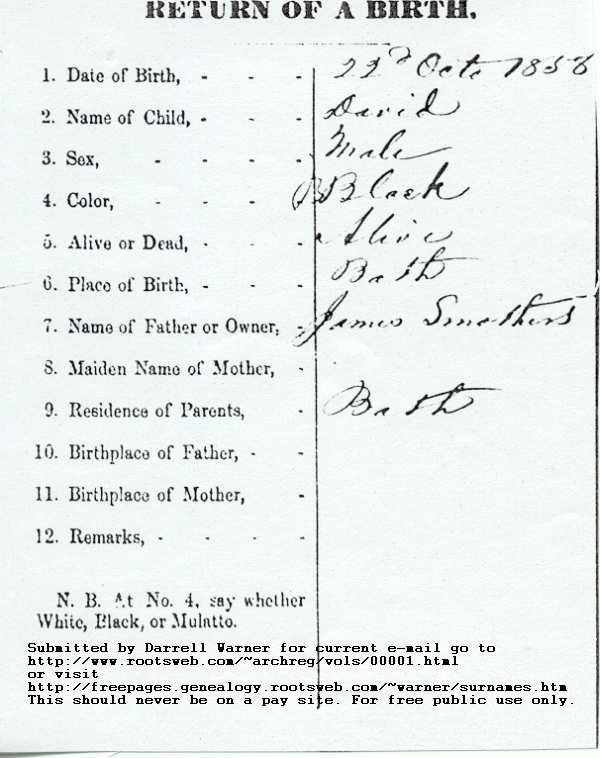 RETURN OF A BIRTH.
1. Date of Birth, - - - 22d Octr 1858
2. Name of Child, - - - David
3. Sex, - - - - Male
4. Color, - - - Black
5. Alive or Dead, - - - Alive
6. Place of Birth, - - - Bath
7. Name of Father or Owner, - James Smathers
8. Maiden Name of Mother, -
9. Residence of Parents, - Bath
10. Birthplace of Father, - -
11. Birthplace of Mother, -
12. Remarks, - - - -
N. B. At No. 4, say whether
White, Black, or Mulatto.
Submitted by Darrell Warner for current e-mail go to
http://www.rootsweb.com/~archreg/vols/00001.html
or visit
http://freepages.genealogy.rootsweb.com/~warner/surnames.htm
This should never be on a pay site. For free public use only.